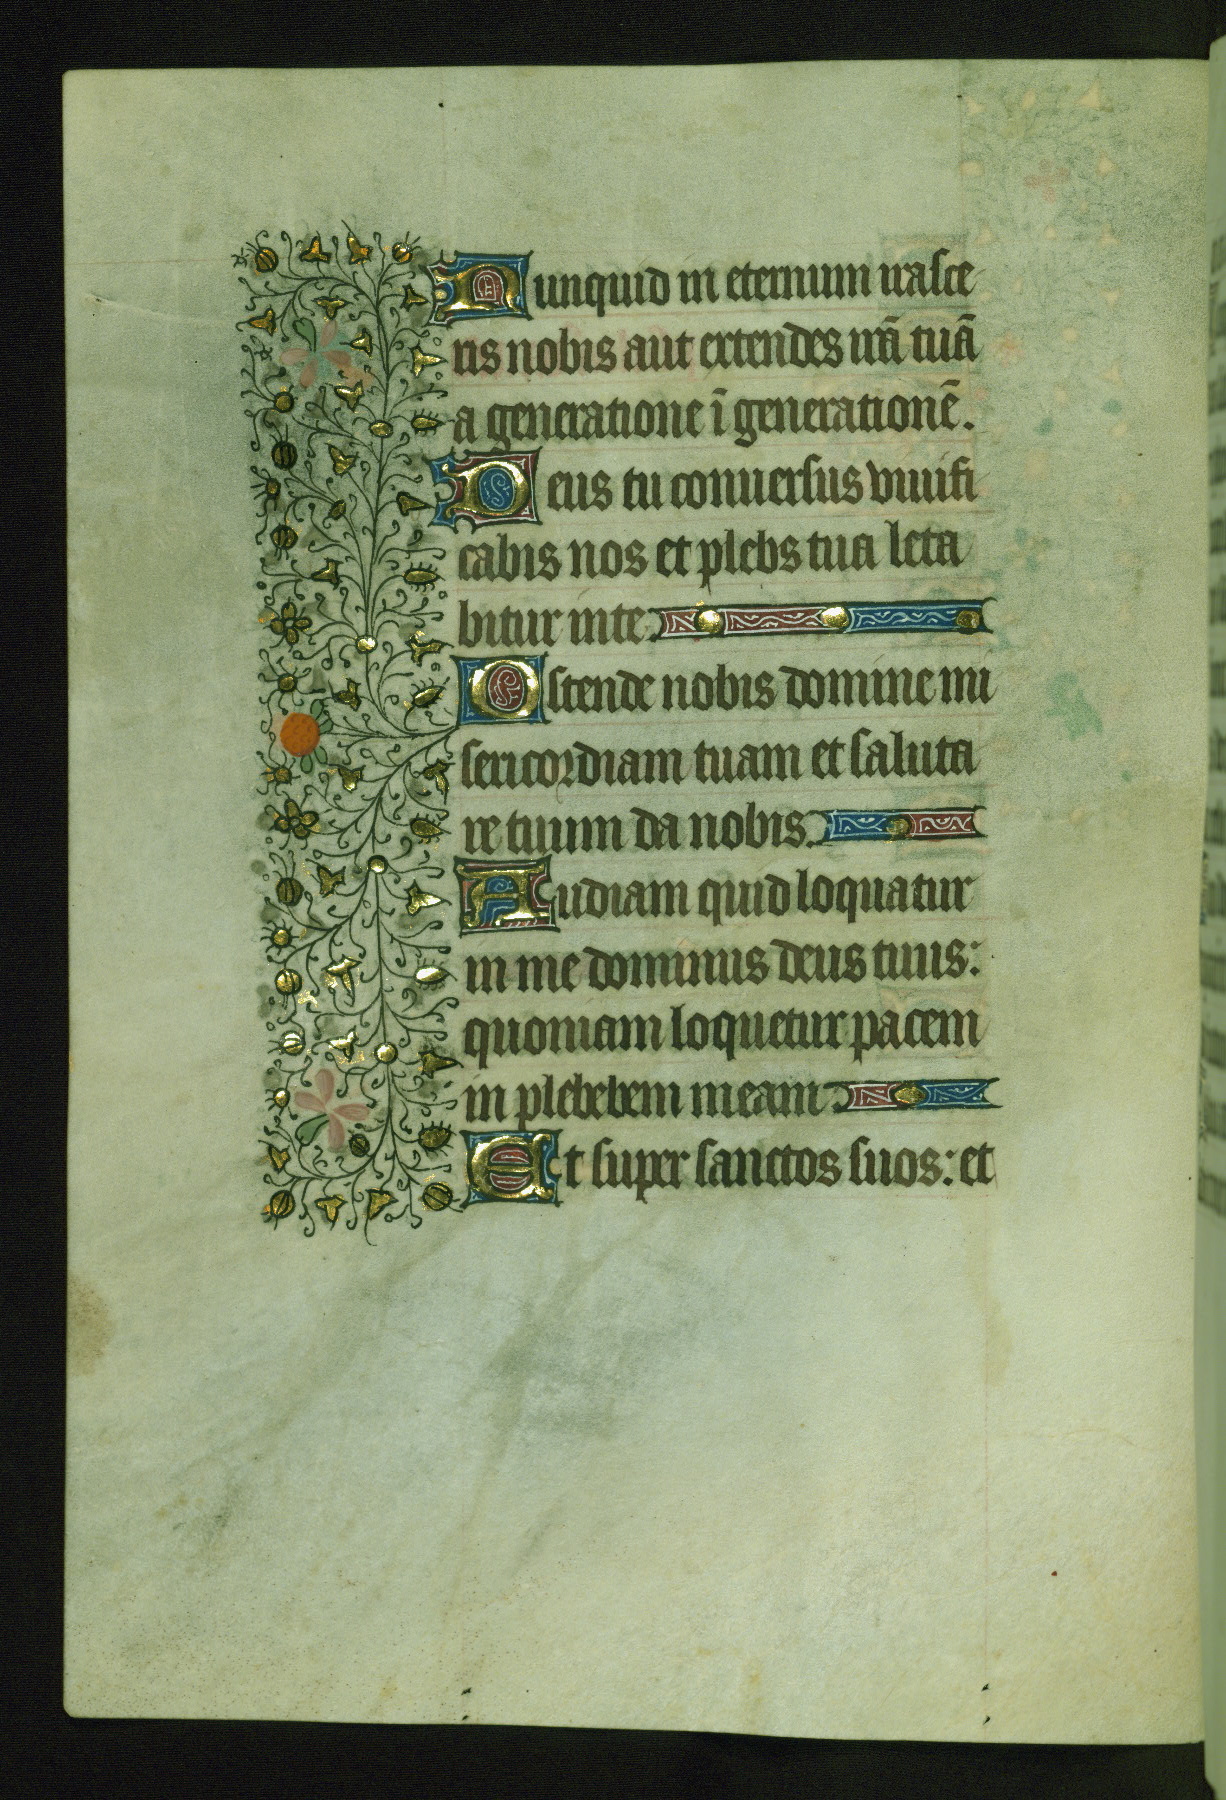 Nunquid in eternum irasce
ris nobis aut extendes irā tuā
a generatione ī generationē.
Deus tu conuersus viuifi
cabis nos et plebs tua leta
bitur in te.
Ostende nobis domine mi
sericordiam tuam et saluta
re tuum da nobis.
Audiam quid loquatur
in me dominus deus tuus:
quoniam loquetur pacem
in plebebem meam.
Et super sanctos suos: et